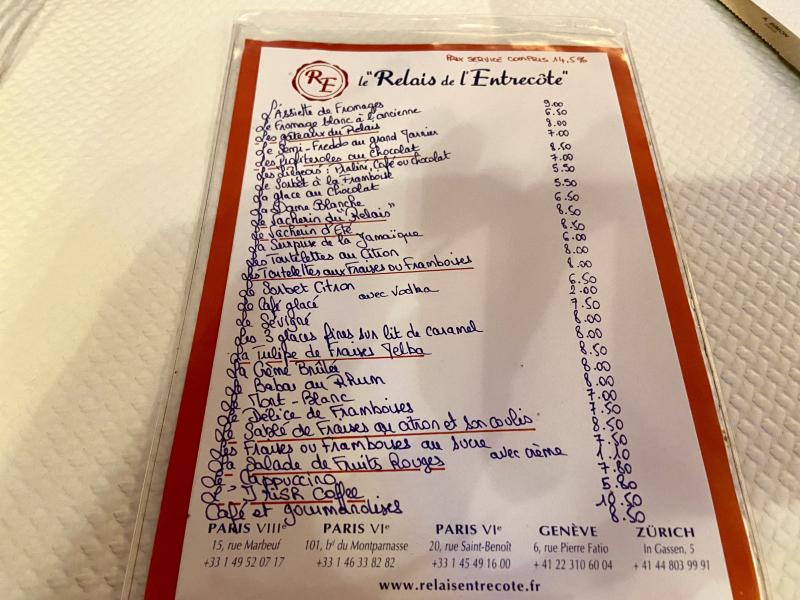 PRIX SERVICE COMPRIS 14,5%
RE le "Relais de l'Entrecôte"
L'Assiette de Fromages 9.00
Le Fromage blanc à l'ancienne 6.50
Les gâteaux du Relais 8.00
Le Semi-Freddo au grand Marnier 7.00
Les Profiteroles au chocolat 8.50
Les Liégeois : Praliné, Café ou Chocolat 7.00
Le Sorbet à la Framboise 5.50
La glace au Chocolat 5.50
La Dame Blanche 6.50
Le Vacherin du "Relais" 8.50
Le Vacherin d'Eté 8.50
La Surprise de la Jamaïque 6.00
Les Tartelettes au Citron 8.00
Les Tartelettes aux Fraises ou Framboises 8.00
Le Sorbet Citron 6.50
avec Vodka 2.00
Le Café glacé 7.50
Le Sévigné 8.00
Les 3 glaces fines sur lit de caramel 8.00
La Tulipe de Fraises Melba 8.50
La Crème Brûlée 8.00
Le Baba au Rhum 8.00
Le Mont-Blanc 7.00
Le Délice de Framboises 7.50
Le Sablé de Fraises au citron et son coulis 8.50
Les Fraises ou Framboises au sucre 7.50
avec crème 1.10
La Salade de Fruits Rouges 7.80
Le Cappuccino 5.80
L'IRISH Coffee 10.50
Café et gourmandises 8.50
PARIS VIIIe PARIS VIe PARIS VIe GENÈVE ZÜRICH
15, rue Marbeuf 101, bd du Montparnasse 20, rue Saint-Benoît 6, rue Pierre Fatio In Gassen, 5
+33 1 49 52 07 17 +33 1 46 33 82 82 +33 1 45 49 16 00 + 41 22 310 60 04 + 41 44 803 99 91
www.relaisentrecote.fr